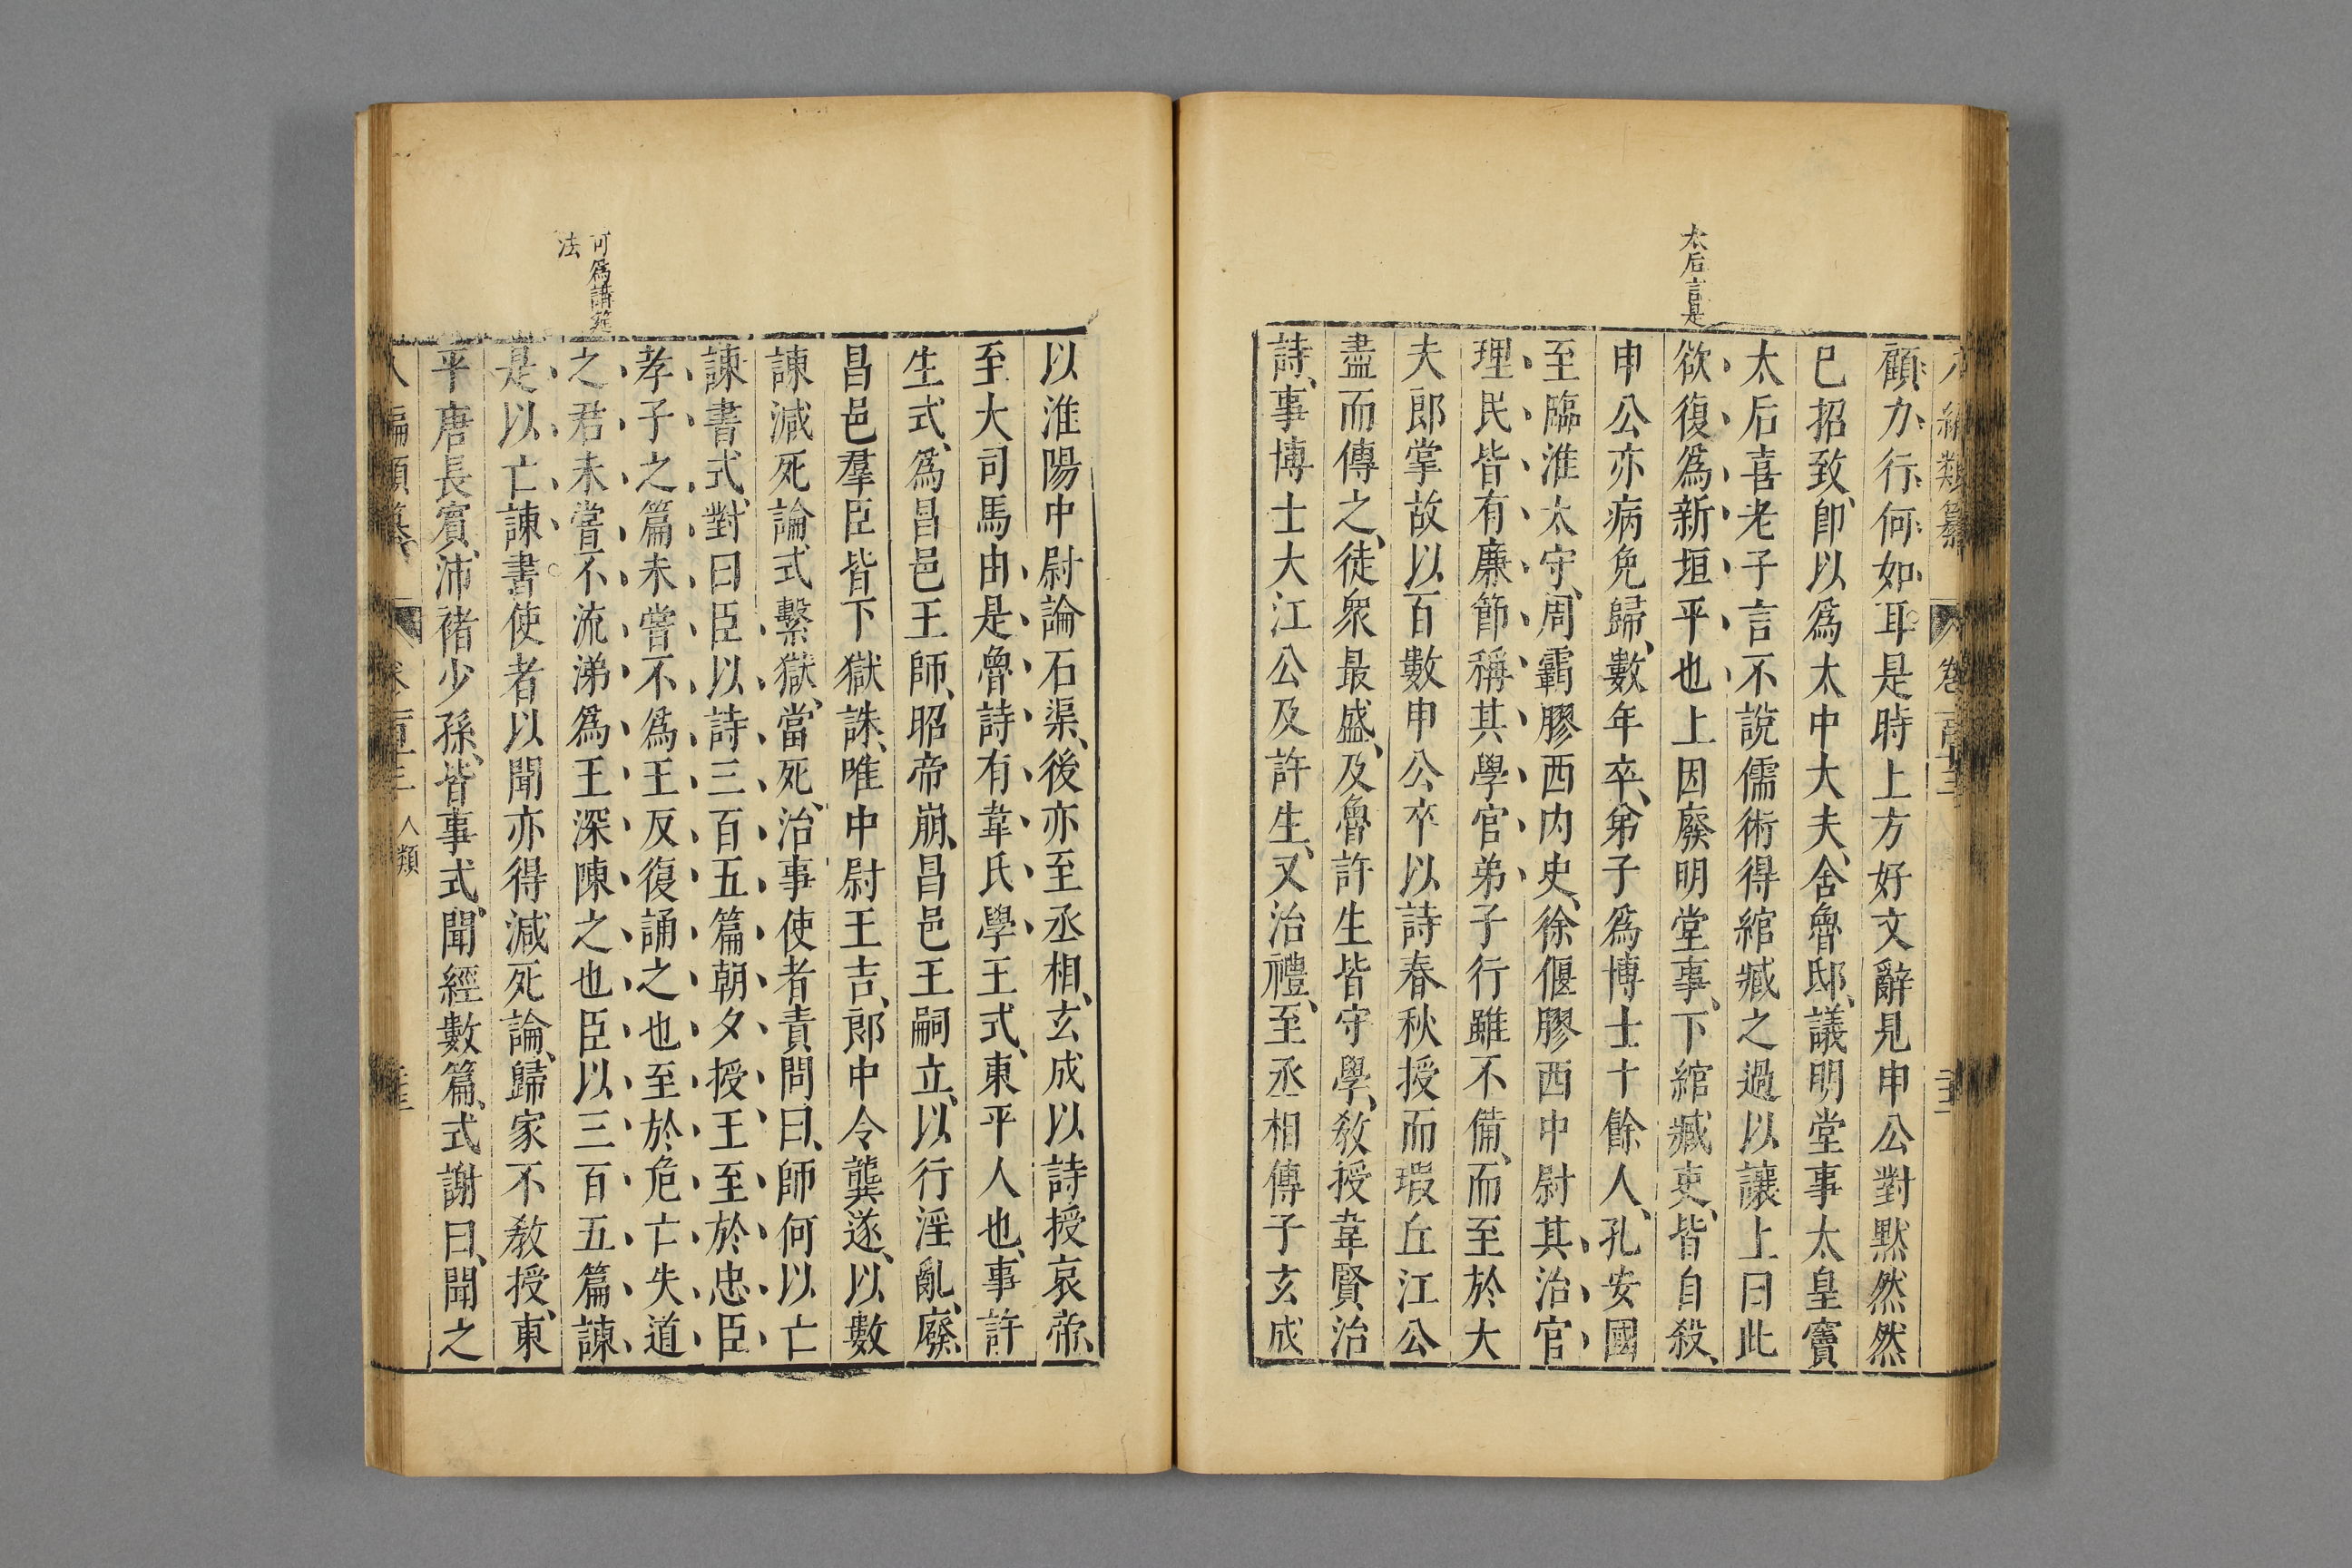 太后言是
顧力行何如耳是時上方好文辭見申公對默然然
已招致卽以爲太中大夫舍魯邸議明堂事太皇竇
太后喜老子言不說儒術得綰臧之過以讓上曰此
欲復爲新垣平也上因廢明堂事下綰臧吏皆自殺
申公亦病免歸數年卒弟子爲博士十餘人孔安國
至臨淮太守周霸膠西內史徐偃膠西中尉其治官
理民皆有廉節稱其學官弟子行雖不備而至於大
夫郎掌故以百數申公卒以詩春秋授而瑕丘江公
盡而傳之徒衆最盛及魯許生皆守學敎授韋賢治
詩事博士大江公及許生又治禮至丞相傳子玄成
可爲講筵
法
以淮陽中尉論石渠後亦至丞相玄成以詩授哀帝
至大司馬由是魯詩有韋氏學王式東平人也事許
生式爲昌邑王師昭帝崩昌邑王嗣立以行淫亂廢
昌邑羣臣皆下獄誅唯中尉王吉郎中令龔遂以數
諫減死論式繫獄當死治事使者責問曰師何以亡
諫書式對曰臣以詩三百五篇朝夕授王至於忠臣
孝子之篇未嘗不爲王反復誦之也至於危亡失道
之君未嘗不流涕爲王深陳之也臣以三百五篇諫
是以亡諫書使者以聞亦得減死論歸家不敎授東
平唐長賓沛褚少孫皆事式聞經數篇式謝曰聞之
人類